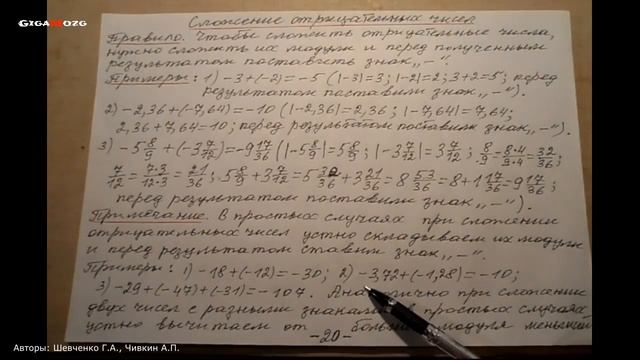 GIGAMOZG
Сложение отрицательных чисел
Правило. Чтобы сложить отрицательные числа,
нужно сложить их модули и перед полученным
результатом поставить знак „–“.
Примеры: 1) –3+(–2)=–5 (|–3|=3; |–2|=2; 3+2=5; перед
результатом поставили знак „–“).
2) –2,36+(–7,64)=–10 (|–2,36|=2,36; |–7,64|=7,64;
2,36+7,64=10; перед результатом поставили знак „–“).
3) –5 8/9+(–3 7/12)=–9 17/36 (|–5 8/9|=5 8/9; |–3 7/12|=3 7/12; 8/9=8·4/9·4=32/36;
7/12=7·3/12·3=21/36; 5 8/9+3 7/12=5 32/36+3 21/36=8 53/36=8+1 17/36=9 17/36;
перед результатом поставили знак „–“).
Примечание. В простых случаях при сложении
отрицательных чисел устно складываем их модули
и перед результатом ставим знак „–“.
Примеры: 1) –18+(–12)=–30; 2) –3,72+(–1,28)=–10;
3) –29+(–47)+(–31)=–107. при сложении
двух чисел с разными знаками в простых случаях
устно вычитаем от большего модуля меньший
–20–
Авторы: Шевченко Г.А., Чивкин А.П.